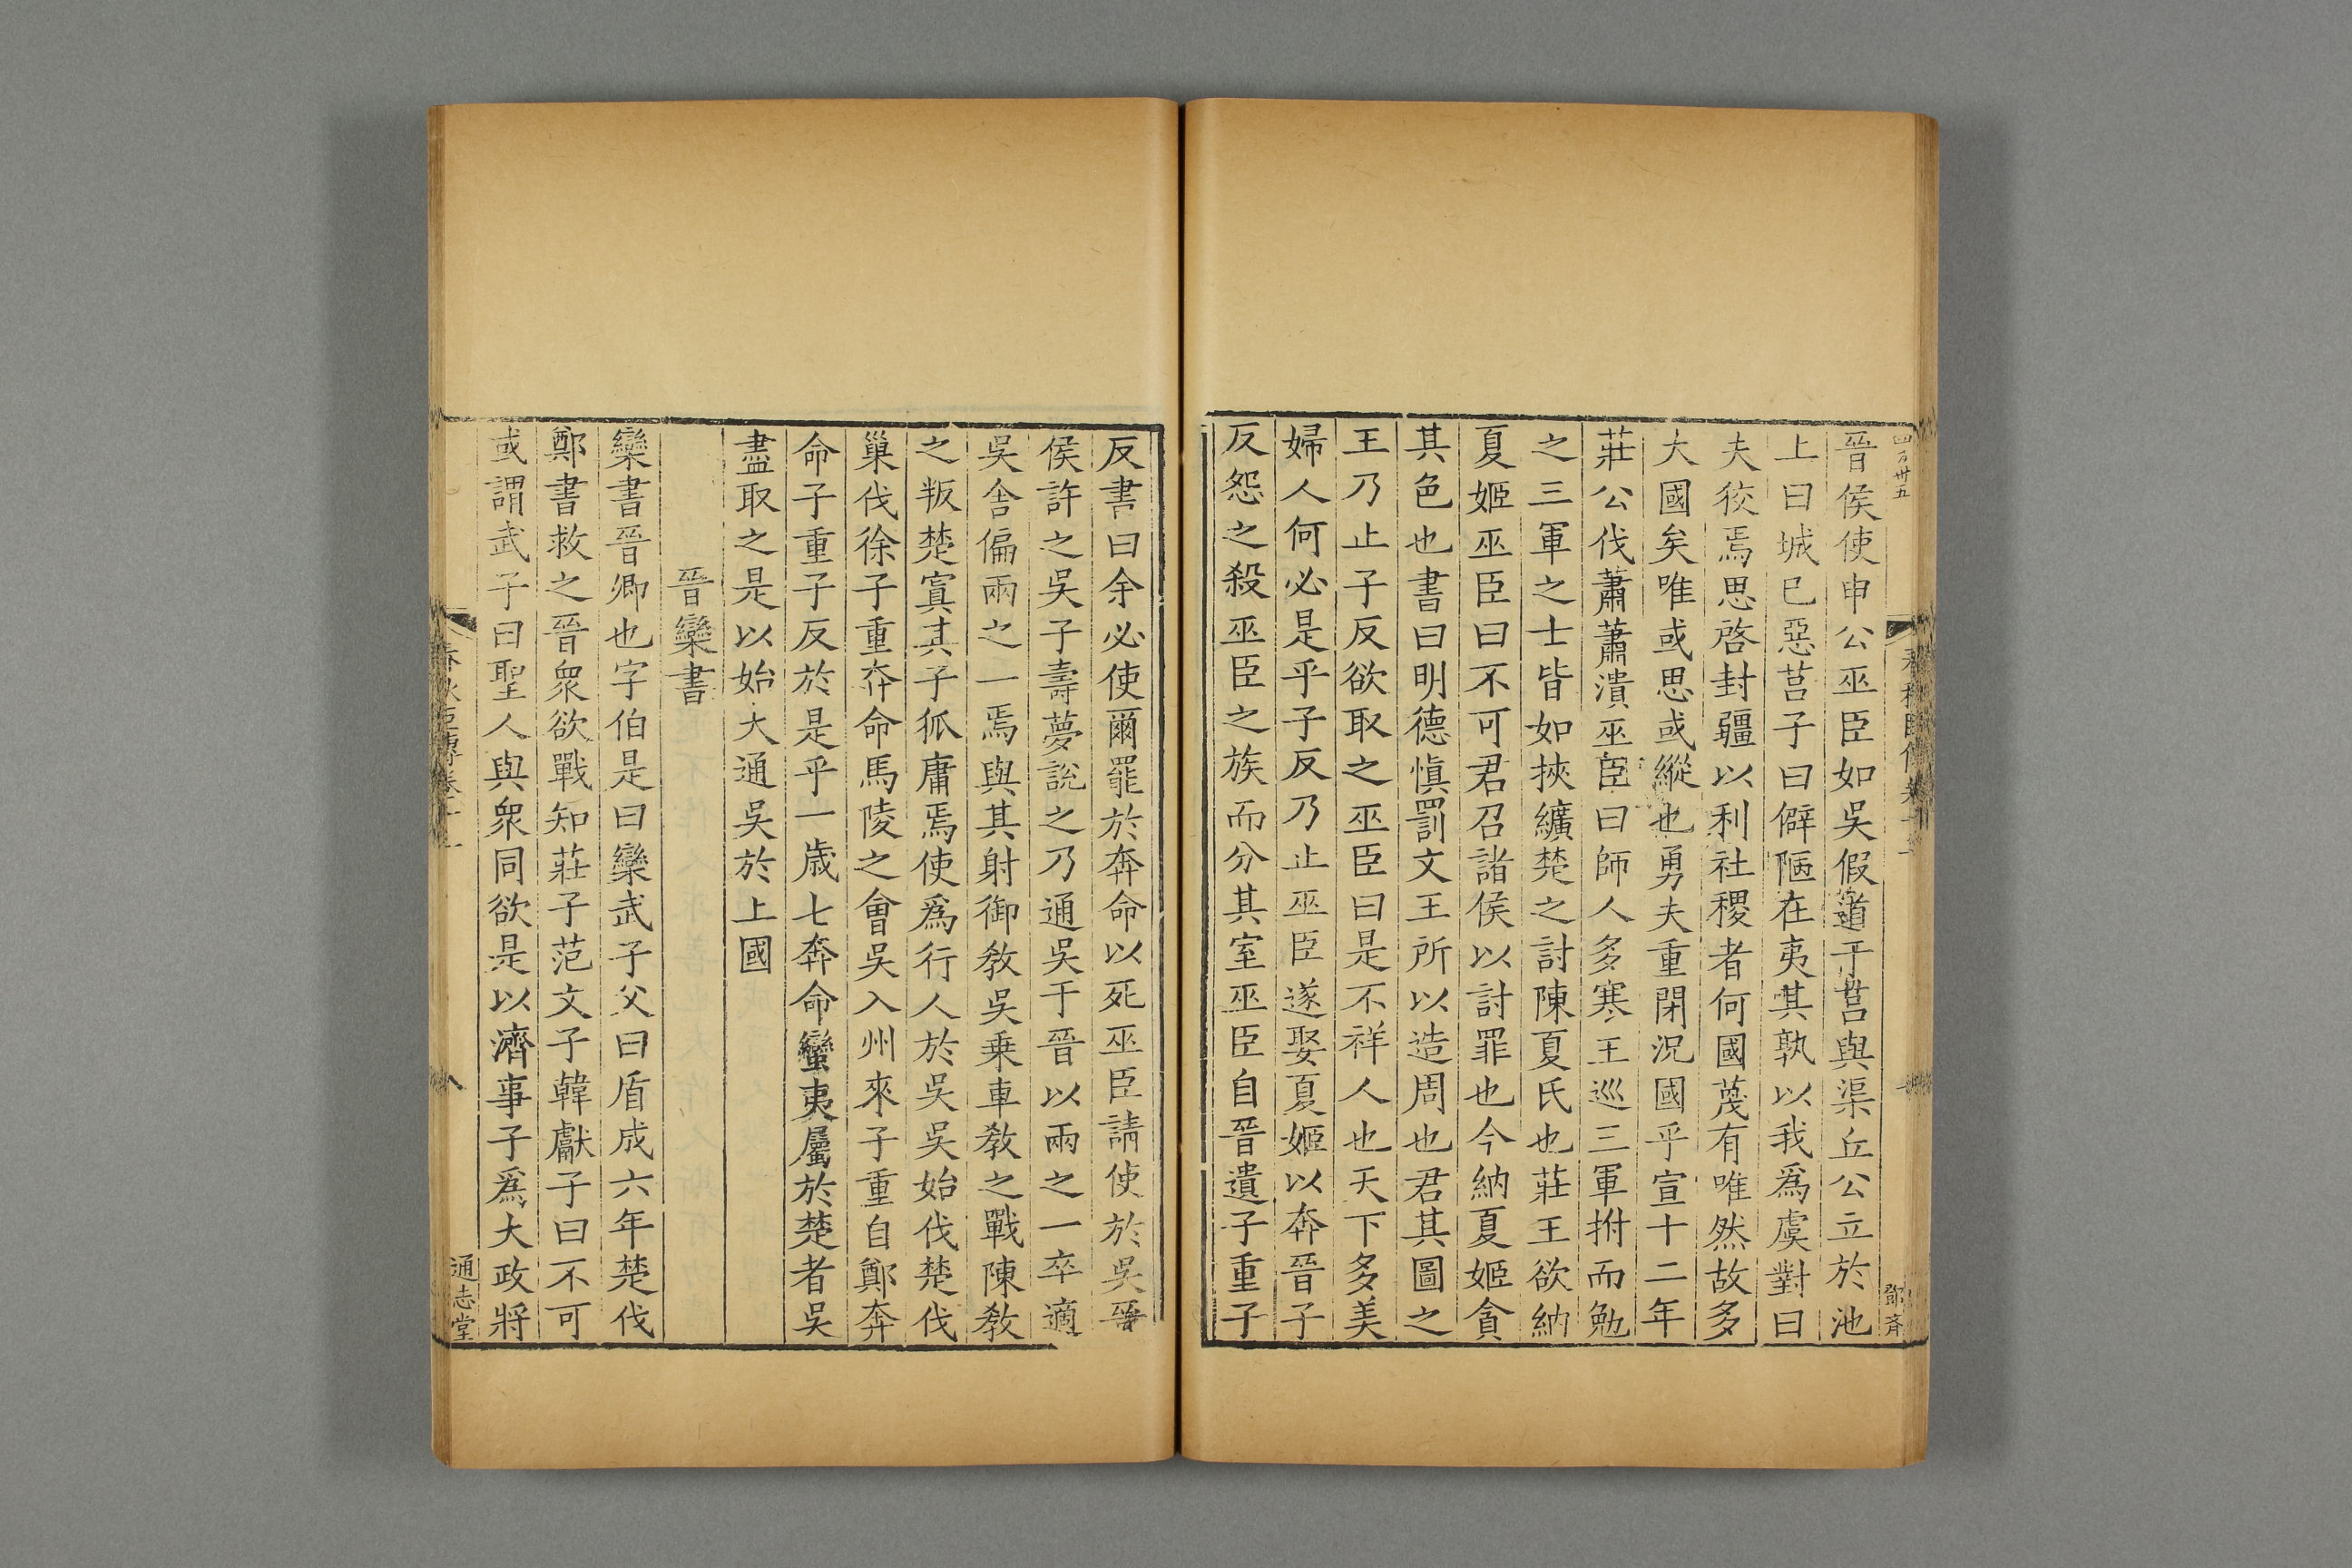 四百卅五
鄧斉
晉侯使申公巫臣如吳假道于莒與渠丘公立於池
上曰城已惡莒子曰僻陋在夷其孰以我爲虞對曰
夫狡焉思啓封疆以利社稷者何國蔑有唯然故多
大國矣唯或思或縱也勇夫重閉況國乎宣十二年
莊公伐蕭蕭潰巫臣曰師人多寒王巡三軍拊而勉
之三軍之士皆如挾纊楚之討陳夏氏也莊王欲納
夏姬巫臣曰不可君召諸侯以討罪也今納夏姬貪
其色也書曰明德慎罰文王所以造周也君其圖之
王乃止子反欲取之巫臣曰是不祥人也天下多美
婦人何必是乎子反乃止巫臣遂娶夏姬以奔晉子
反怨之殺巫臣之族而分其室巫臣自晉遺子重子
反書曰余必使爾罷於奔命以死巫臣請使於吳晉
侯許之吳子壽夢說之乃通吳于晉以兩之一卒適
吳舍偏兩之一焉與其射御敎吳乗車敎之戰陳敎
之叛楚寘其子狐庸焉使爲行人於吳吳始伐楚伐
巢伐徐子重奔命馬陵之會吳入州來子重自鄭奔
命子重子反於是乎一歲七奔命蠻夷屬於楚者吳
盡取之是以始大通吳於上國
晉欒書
欒書晉卿也字伯是曰欒武子父曰盾成六年楚伐
鄭書救之晉衆欲戰知莊子范文子韓獻子曰不可
或謂武子曰聖人與衆同欲是以濟事子爲大政將
春秋臣傳卷十一
八
通志堂